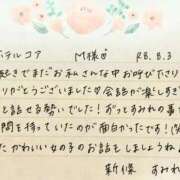 ホテルコア　M様♡　R8.8.3
起きてまだお私さんな中お呼びたさり
りがとうございました♡会話が楽しすぎ
と話せる勢いでした！ずっとすみれの事で
間を持っていたのが面白かったです！(笑
たかわいい女の子のお話をしましょうね♪
新保　すみれ